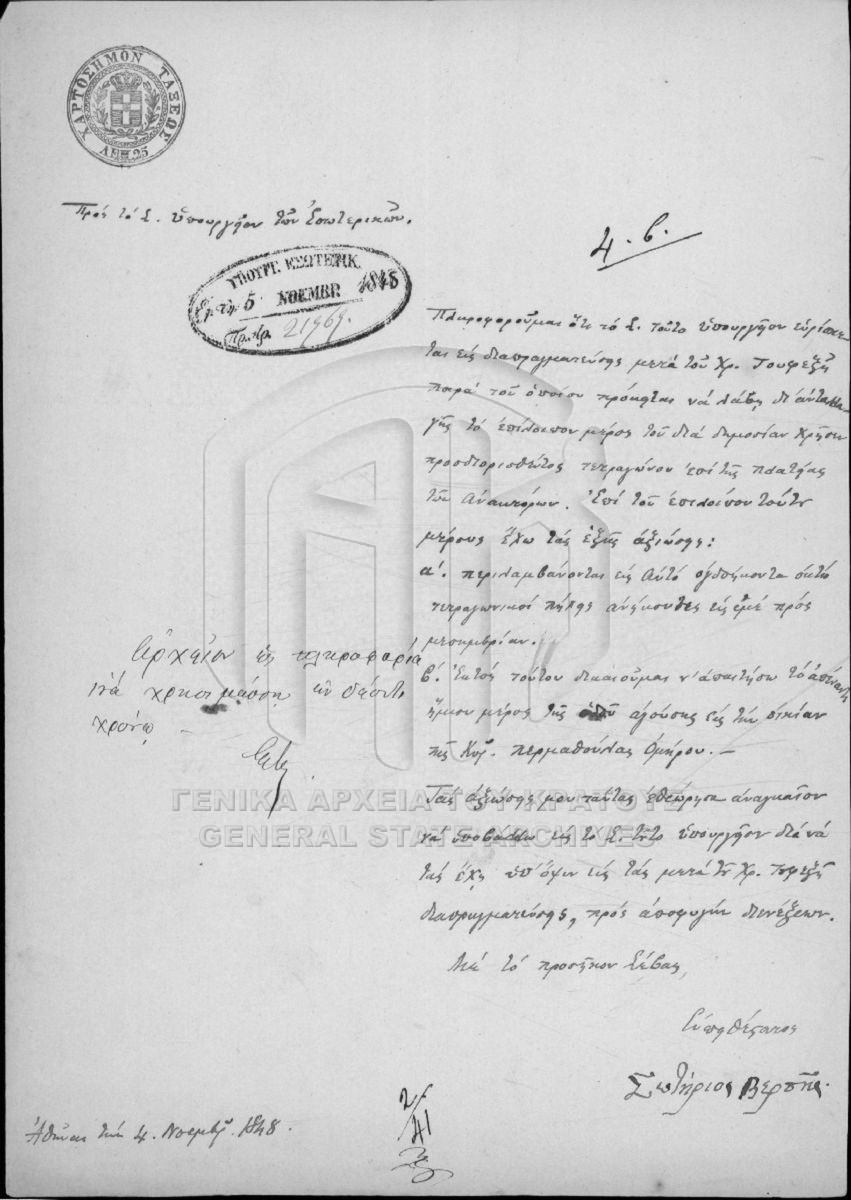 ΧΑΡΤΟΣΗΜΟΝ ΤΑΞΕΩΣ
ΛΕΠ. 25
Πρός τό Σ. ὑπουργεῖον τῶν Ἐσωτερικῶν.
4. β.
ΥΠΟΥΡΓ. ΕΣΩΤΕΡΙΚ.
Ἐλ. τῇ 5 ΝΟΕΜΒΡ 1848
Πρ. Ἀρ. 21969.
Πληροφοροῦμαι ὅτι τό Σ. τοῦτο ὑπουργεῖον εὑρίσκε-
ται εἰς διαπραγματεύσεις μετά τοῦ Χρ. Τουφεξῆ
παρά τοῦ ὁποίου πρόκειται νά λάβῃ δι' ἀνταλλα-
γῆς τό ἐπίλοιπον μέρος τοῦ διά δημοσίαν χρῆσιν
προσδιορισθέντος τετραγώνου ἐπί τῆς πλατείας
τῶν Ἀνακτόρων. Ἐπί τοῦ ἐπιλοίπου τούτου
μέρους ἔχω τάς ἑξῆς ἀξιώσεις:
α'. περιλαμβάνονται εἰς αὐτό ὀγδοήκοντα ὀκτώ
τετραγωνικοί πήχεις ἀνήκοντες εἰς ἐμέ πρός
μεσημβρίαν.
β'. Ἐκτός τούτου δικαιοῦμαι ν' ἀπαιτήσω τό ἀπέναντι
μέρος τῆς ἀγούσης εἰς τήν οἰκίαν
τῆς Κυρ. Ὁμήρου. —
Τάς ἀξιώσεις μου ταύτας ἐθεώρησα ἀναγκαῖον
νά ὑποβάλλω εἰς τό Σ. τοῦτο ὑπουργεῖον διά νά
τάς ἔχῃ ὑπ' ὄψιν εἰς τάς μετά τοῦ Χρ. Τουφεξῆ
διαπραγματεύσεις, πρός ἀποφυγήν διενέξεων.
Μέ τό προσῆκον σέβας,
Εὐπειθέστατος
Σωτήριος
Ἀρχεῖον ὡς πληροφορία
ἵνα χρησιμεύσῃ ἐν δέοντι
χρόνῳ —
ΓΕΝΙΚΑ ΑΡΧΕΙΑ ΤΟΥ ΚΡΑΤΟΥΣ
GENERAL STATE ARCHIVES
Ἀθῆναι τήν 4. Νοεμβρ. 1848.
2/41